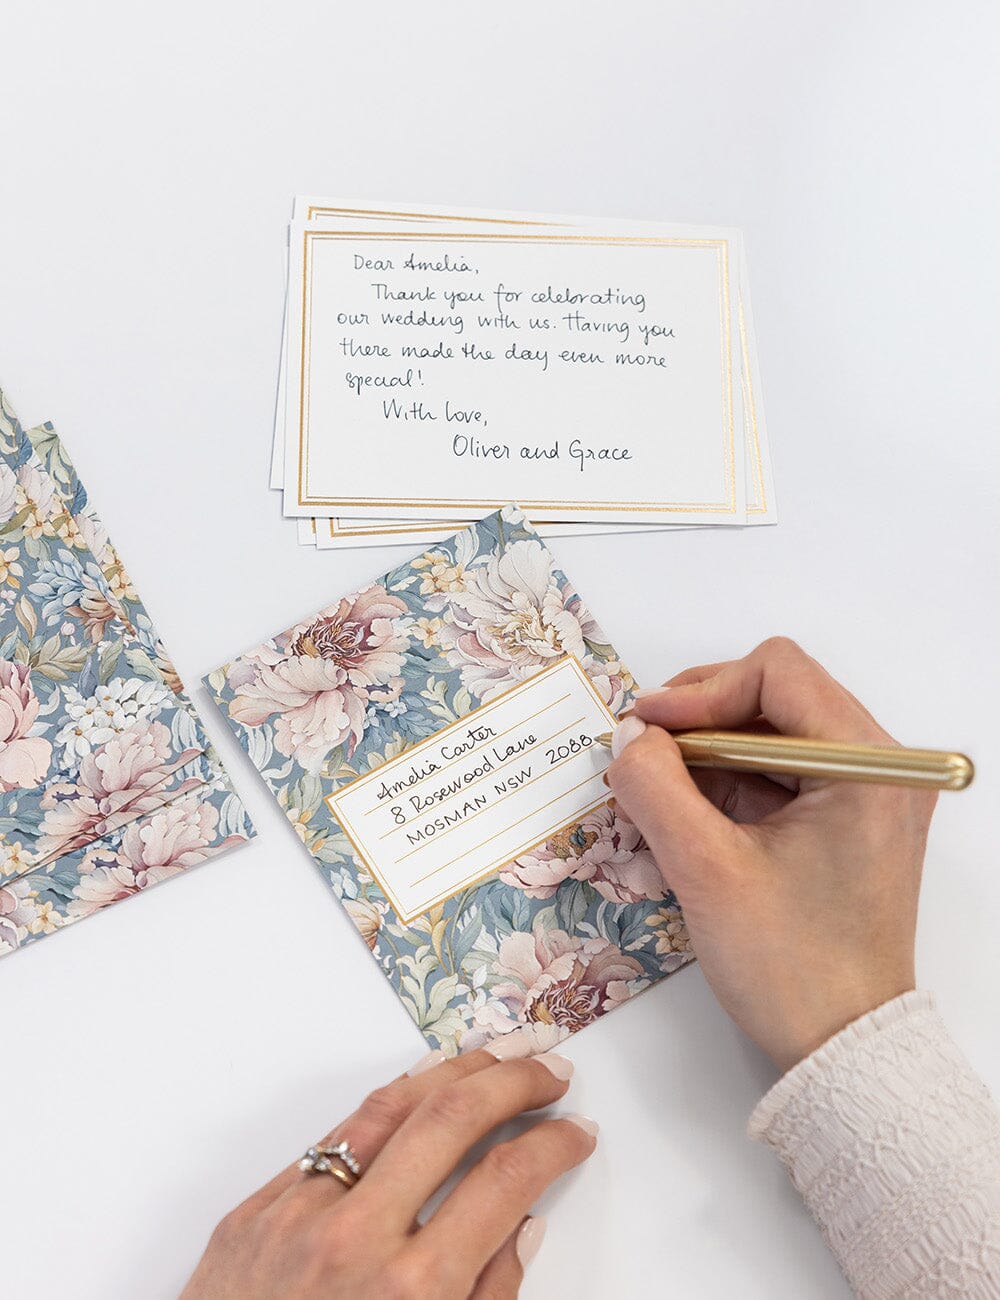 Dear Amelia,
Thank you for celebrating
our wedding with us. Having you
there made the day even more
special!
With love,
Oliver and Grace
Amelia Carter
8 Rosewood Lane
MOSMAN NSW 2088